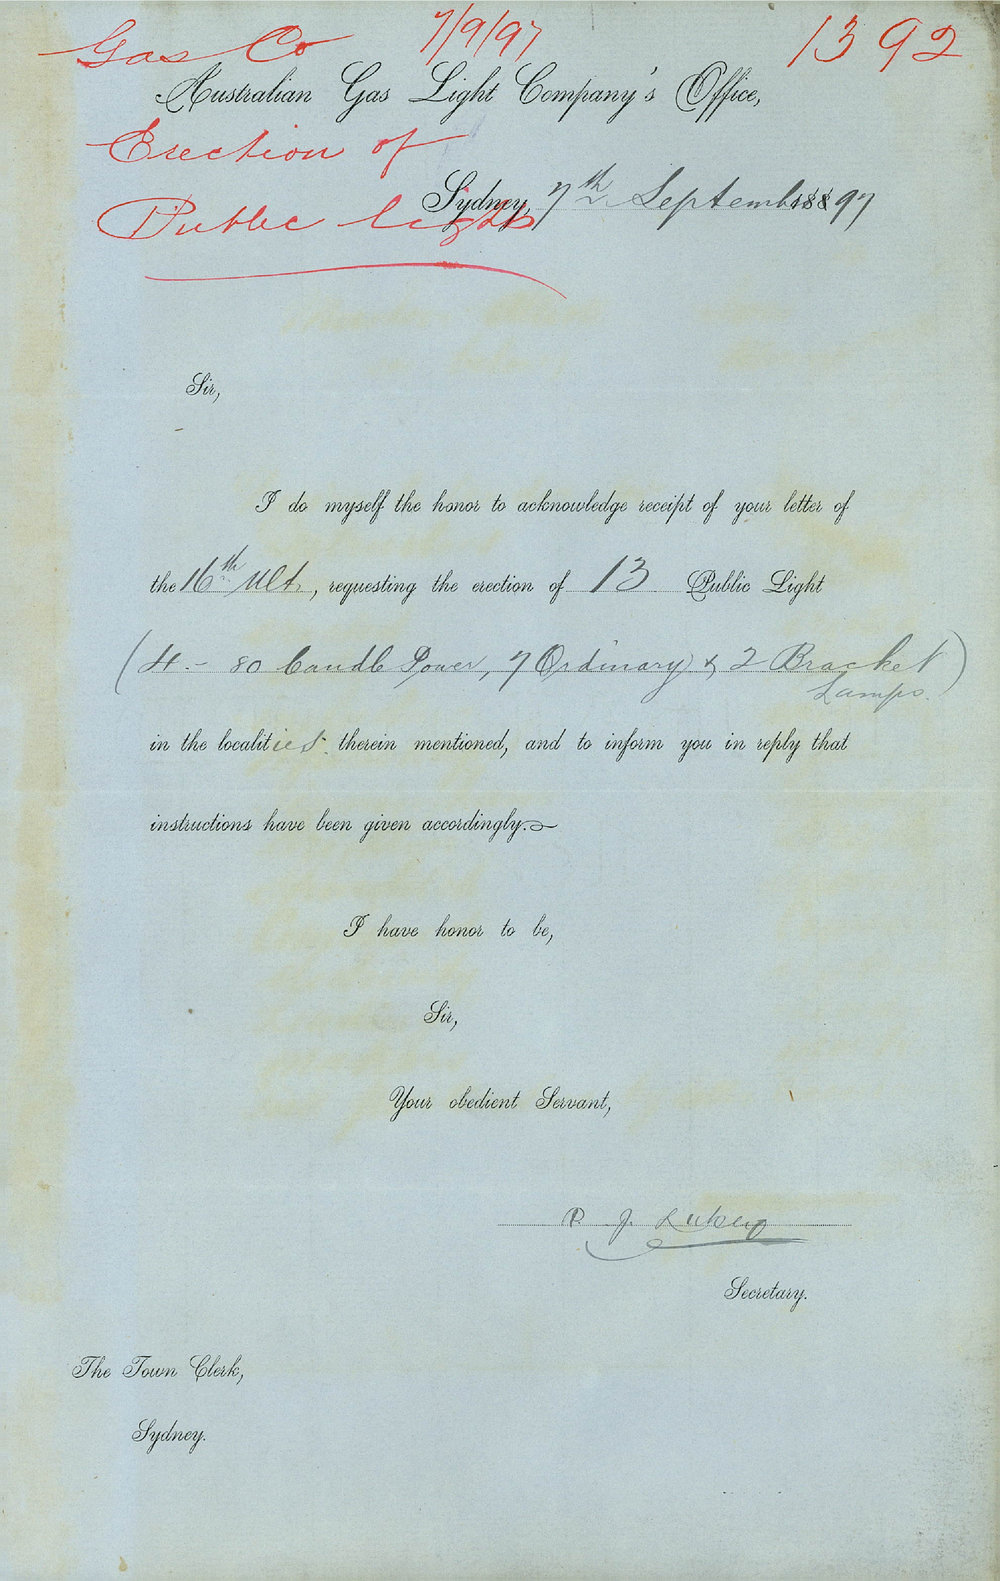 Gas Co 7/9/97 1392
Australian Gas Light Company's Office,
Erection of
Sydney, 7th Septemb 188 97
Public lights
Sir,
I do myself the honor to acknowledge receipt of your letter of
the 16th Ult., requesting the erection of 13 Public Light
(4 - 80 Candle Power, 7 Ordinary & 2 Bracket
Lamps.)
in the localities therein mentioned, and to inform you in reply that
instructions have been given accordingly.
I have honor to be,
Sir,
Your obedient Servant,
R J Lukey
Secretary.
The Town Clerk,
Sydney.